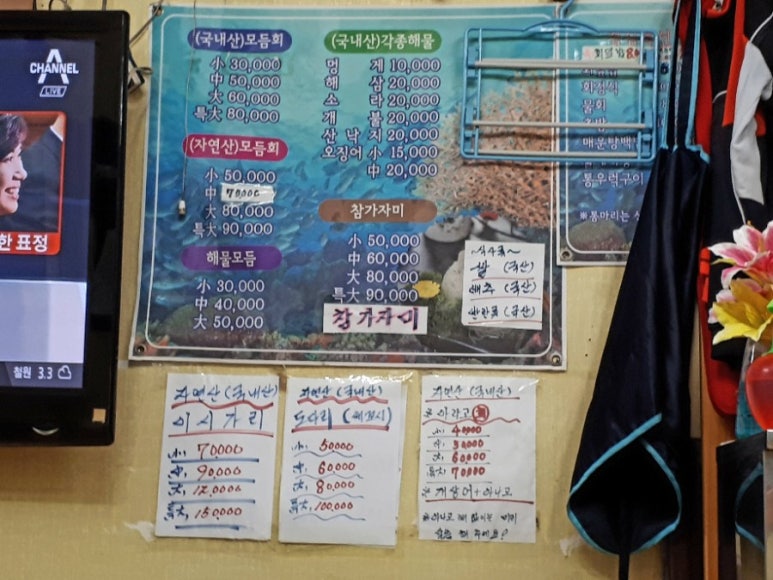 CHANNEL
LIVE
한 표정
철원 3.3
(국내산)모듬회
小 30,000
中 50,000
大 60,000
特大 80,000
(자연산)모듬회
小 50,000
中 70000
大 80,000
特大 90,000
해물모듬
小 30,000
中 40,000
大 50,000
(국내산)각종해물
멍 게 10,000
해 삼 20,000
소 라 20,000
개 불 20,000
산 낙 지 20,000
오징어 小 15,000
中 20,000
참가자미
小 50,000
中 60,000
大 80,000
特大 90,000
참가자미
쌀 (국산)
배추 (국산)
(국산)
물회
매운탕
통우럭구이
※통마리는
자연산(국내산)
이시가리
小, 70000
中, 90000
大, 120000
특大, 150000
자연산 (국내산)
도다리
小, 50000
中, 60000
大, 80000
특大, 100000
자연산(국내산)
小 40000
中 50000
大 60000
특大 70000